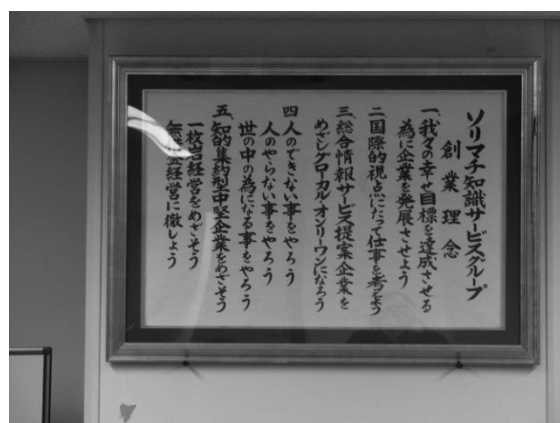 ソリマチ知識サービスグループ
創業理念
一、我々の幸せ目標を達成させる
為に企業を発展させよう
二、国際的視点にたって仕事を考えよう
三、総合情報サービス提案企業を
めざしグローカル・オンリーワンになろう
四、人のできない事をやろう
人のやらない事をやろう
世の中の為になる事をやろう
五、知的集約型中堅企業をめざそう
一枚岩経営をめざそう
経営に徹しよう